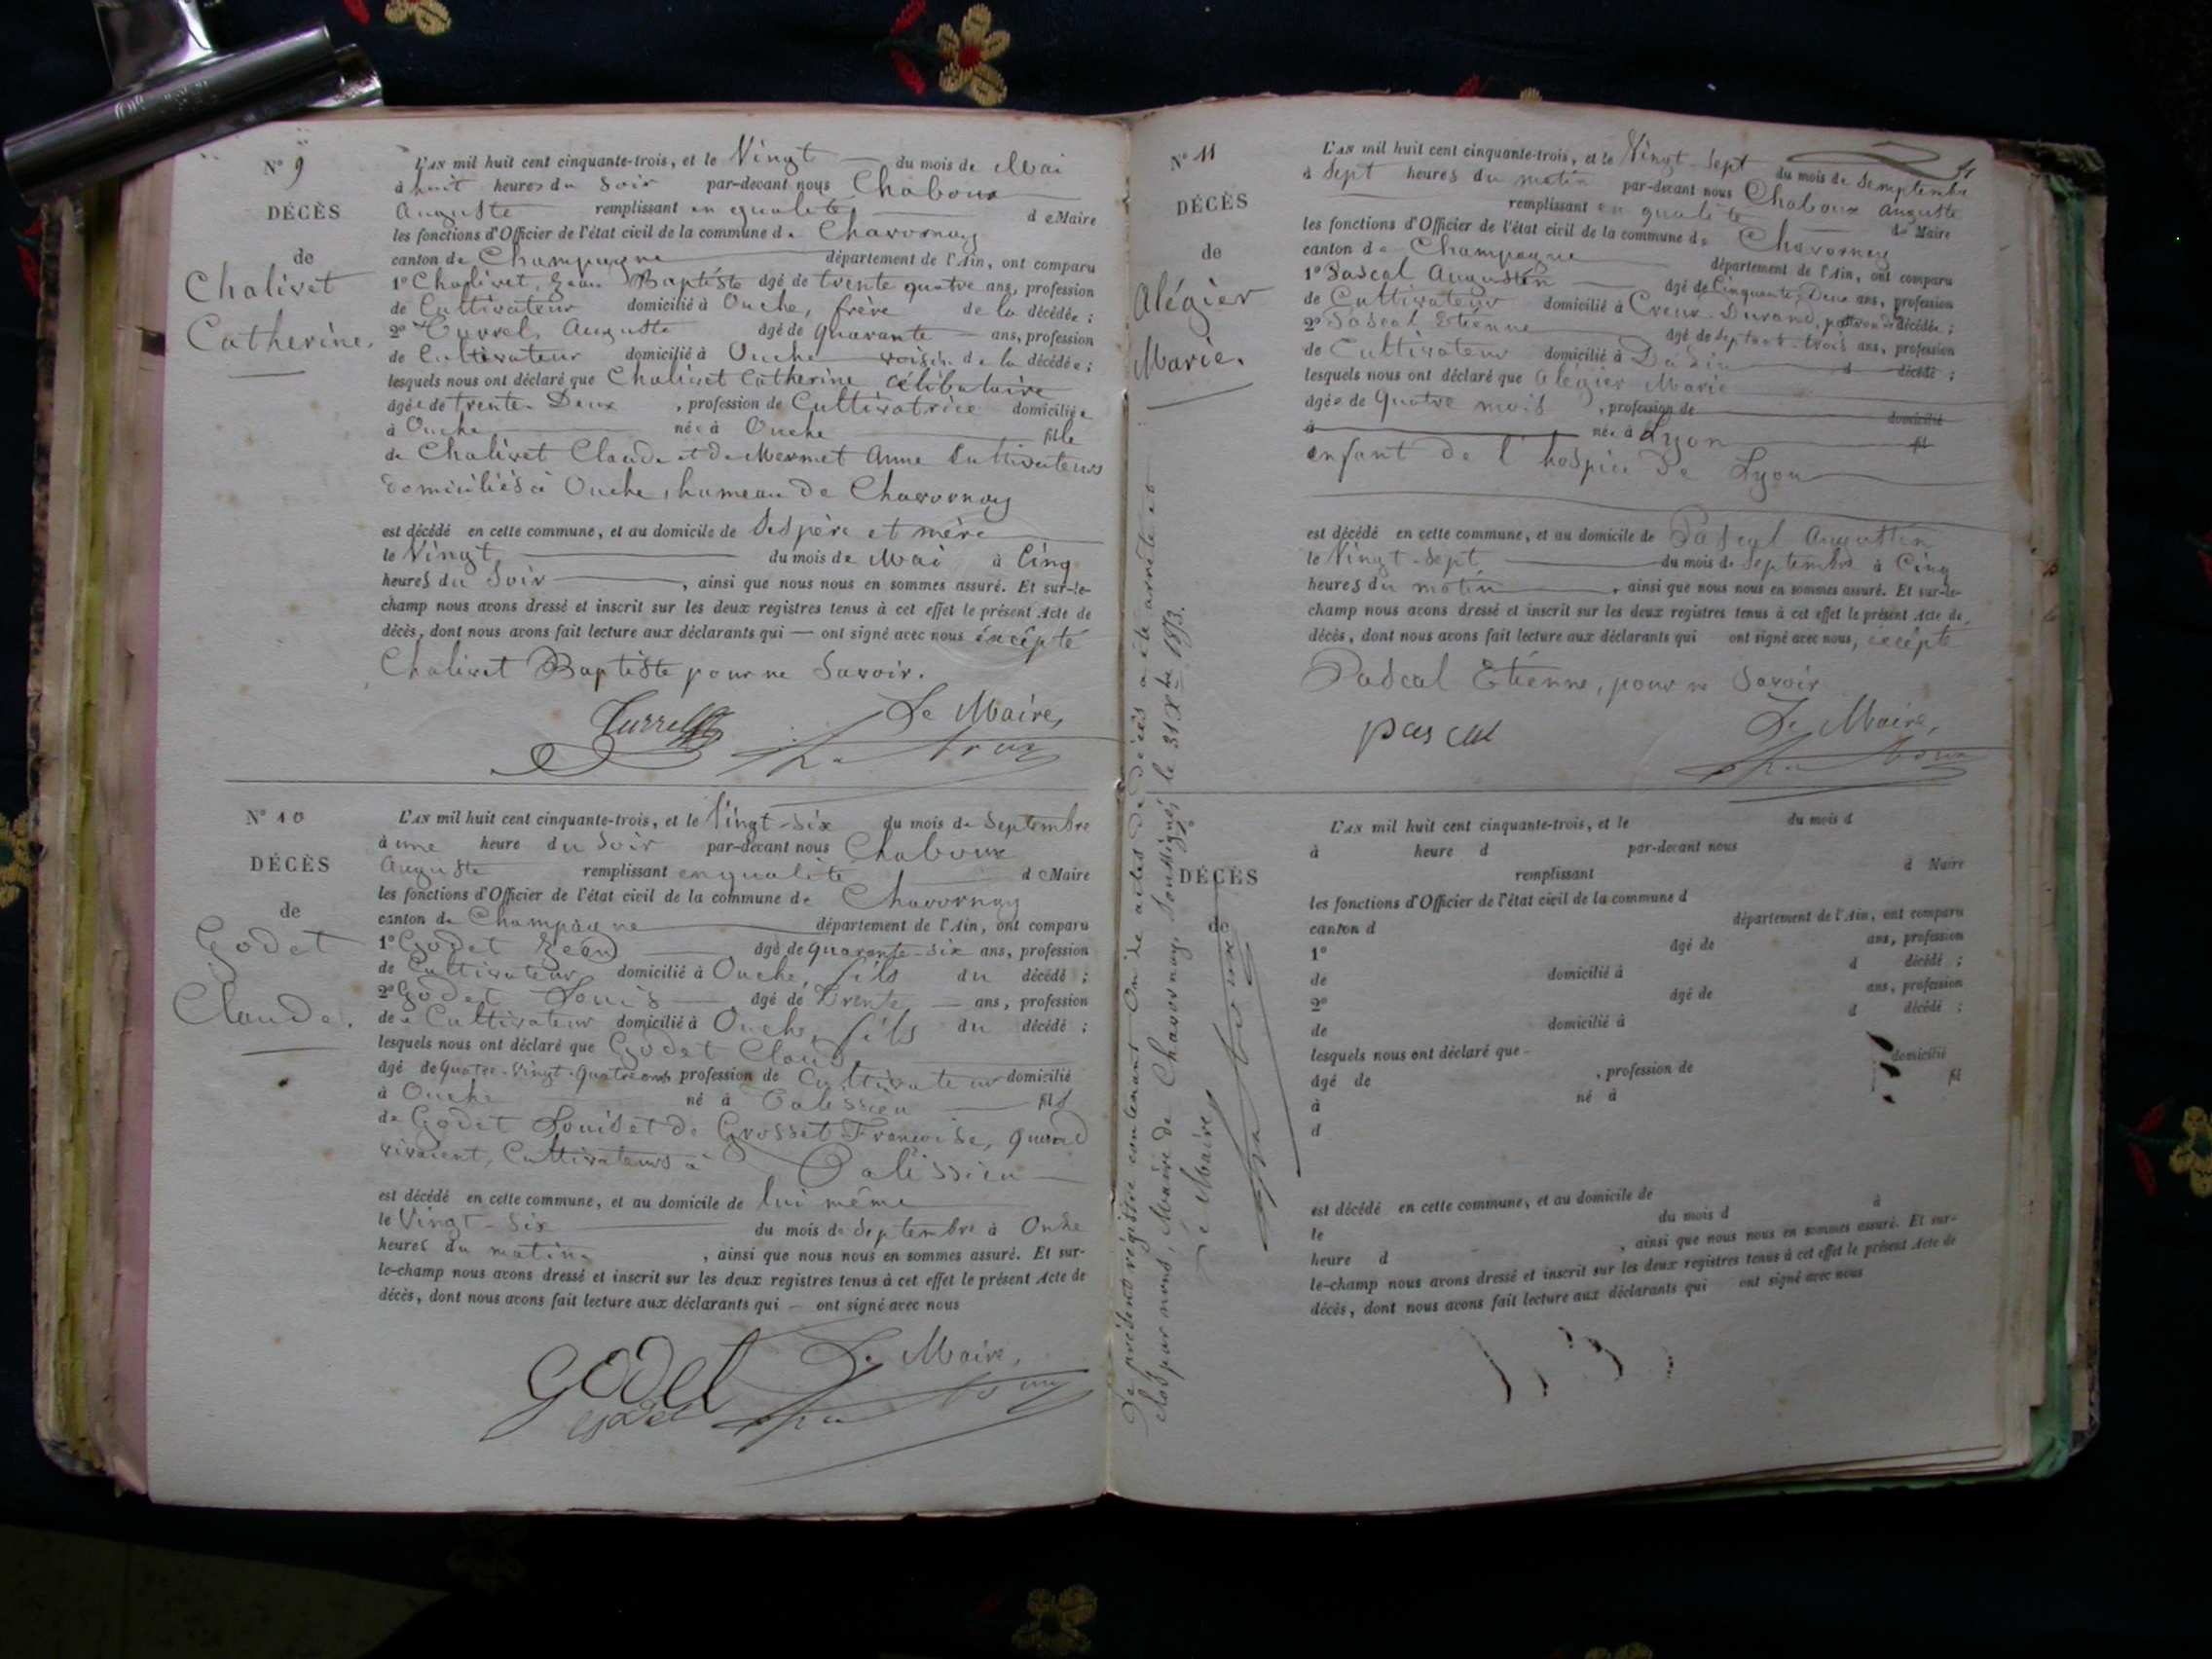 N° 9
DÉCÈS
de
Chalivet
Catherine.
L'AN mil huit cent cinquante-trois, et le Vingt du mois de Mai
à huit heures du Soir par-devant nous Chaboux
Auguste remplissant en qualité de Maire
les fonctions d'Officier de l'état civil de la commune de Chavornay
canton de Champagne département de l'Ain, ont comparu
1° Chalivet, Jean Baptiste âgé de trente quatre ans, profession
de Cultivateur domicilié à Ouche, frère de la décédée ;
2° Turrel, Auguste âgé de quarante ans, profession
de Cultivateur domicilié à Ouche voisin de la décédée ;
lesquels nous ont déclaré que Chalivet Catherine célibataire
âgée de trente-Deux , profession de Cultivatrice domiciliée
à Ouche née à Ouche fille
de Chalivet Claude et de Mermet Anne Cultivateurs
domiciliés à Ouche, hameau de Chavornay
est décédé en cette commune, et au domicile de Ses père et mère
le Vingt du mois de Mai à Cinq
heures du Soir , ainsi que nous nous en sommes assuré. Et sur-le-
champ nous avons dressé et inscrit sur les deux registres tenus à cet effet le présent Acte de
décès, dont nous avons fait lecture aux déclarants qui — ont signé avec nous éxcépté
Chalivet Baptiste pour ne Savoir.
Turrel Le Maire,
Chaboux
N° 10
DÉCÈS
de
Godet
Claude.
L'AN mil huit cent cinquante-trois, et le Vingt-Six du mois de Septembre
à une heure du Soir par-devant nous Chaboux
Auguste remplissant en qualité de Maire
les fonctions d'Officier de l'état civil de la commune de Chavornay
canton de Champagne département de l'Ain, ont comparu
1° Godet Jean âgé de quarante-Six ans, profession
de Cultivateur domicilié à Ouche, fils du décédé ;
2° Godet Louis âgé de Trente ans, profession
de Cultivateur domicilié à Ouche, fils du décédé ;
lesquels nous ont déclaré que Godet Claude
âgé de Quatre-Vingt-Quatre ans profession de Cultivateur domicilié
à Ouche né à Talissieu fils
de Godet Louis et de Grosset Françoise, quand
vivaient, Cultivateurs à Talissieu
est décédé en cette commune, et au domicile de lui même
le Vingt-Six du mois de Septembre à Onze
heures du matin , ainsi que nous nous en sommes assuré. Et sur-
le-champ nous avons dressé et inscrit sur les deux registres tenus à cet effet le présent Acte de
décès, dont nous avons fait lecture aux déclarants qui — ont signé avec nous
Godet Le Maire,
godet Chaboux
N° 11
DÉCÈS
de
Alégier
Marie.
L'AN mil huit cent cinquante-trois, et le Vingt-Sept du mois de Semptembre
à Sept heures du matin par-devant nous Chaboux Auguste
remplissant en qualité de Maire
les fonctions d'Officier de l'état civil de la commune de Chavornay
canton de Champagne département de l'Ain, ont comparu
1° Pascal Augustin âgé de Cinquante-Deux ans, profession
de Cultivateur domicilié à Creux-Durand, décédée ;
2° Pascal Etienne âgé de Septante-trois ans, profession
de Cultivateur domicilié à d décédé ;
lesquels nous ont déclaré que Alégier Marie
âgée de Quatre mois , profession de domicilié
à née à Lyon fil
enfant de l'hospice de Lyon
est décédé en cette commune, et au domicile de Pascal Augustin
le Vingt-Sept du mois de Septembre à Cinq
heures du matin , ainsi que nous nous en sommes assuré. Et sur-le-
champ nous avons dressé et inscrit sur les deux registres tenus à cet effet le présent Acte de
décès, dont nous avons fait lecture aux déclarants qui ont signé avec nous, éxcépté
Pascal Etienne, pour ne Savoir
pascal Le Maire,
Chaboux
Le présent régistre contenant Onze actes de décès a été arrêté et
clos par nous, Maire de Chavornay, Soussigné, le 31 Xbre 1853.
Le Maire,
Chaboux
DÉCÈS
de
L'AN mil huit cent cinquante-trois, et le du mois d
à heure d par-devant nous
remplissant d Maire
les fonctions d'Officier de l'état civil de la commune d
canton d département de l'Ain, ont comparu
1° âgé de ans, profession
de domicilié à d décédé ;
2° âgé de ans, profession
de domicilié à d décédé ;
lesquels nous ont déclaré que
âgé de , profession de domicilié
à né à fil
d
est décédé en cette commune, et au domicile de
le du mois d à
heure d , ainsi que nous nous en sommes assuré. Et sur-
le-champ nous avons dressé et inscrit sur les deux registres tenus à cet effet le présent Acte de
décès, dont nous avons fait lecture aux déclarants qui ont signé avec nous